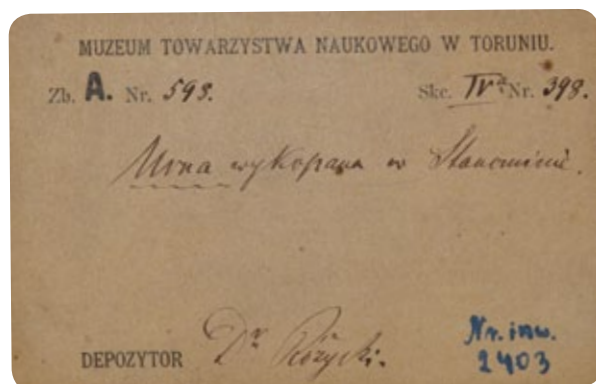 MUZEUM TOWARZYSTWA NAUKOWEGO W TORUNIU.
Zb. A. Nr. 593. Skc. IVa Nr. 398.
Urna wykopana w Stanominie.
DEPOZYTOR Dr Różycki.
Nr. inw.
2403